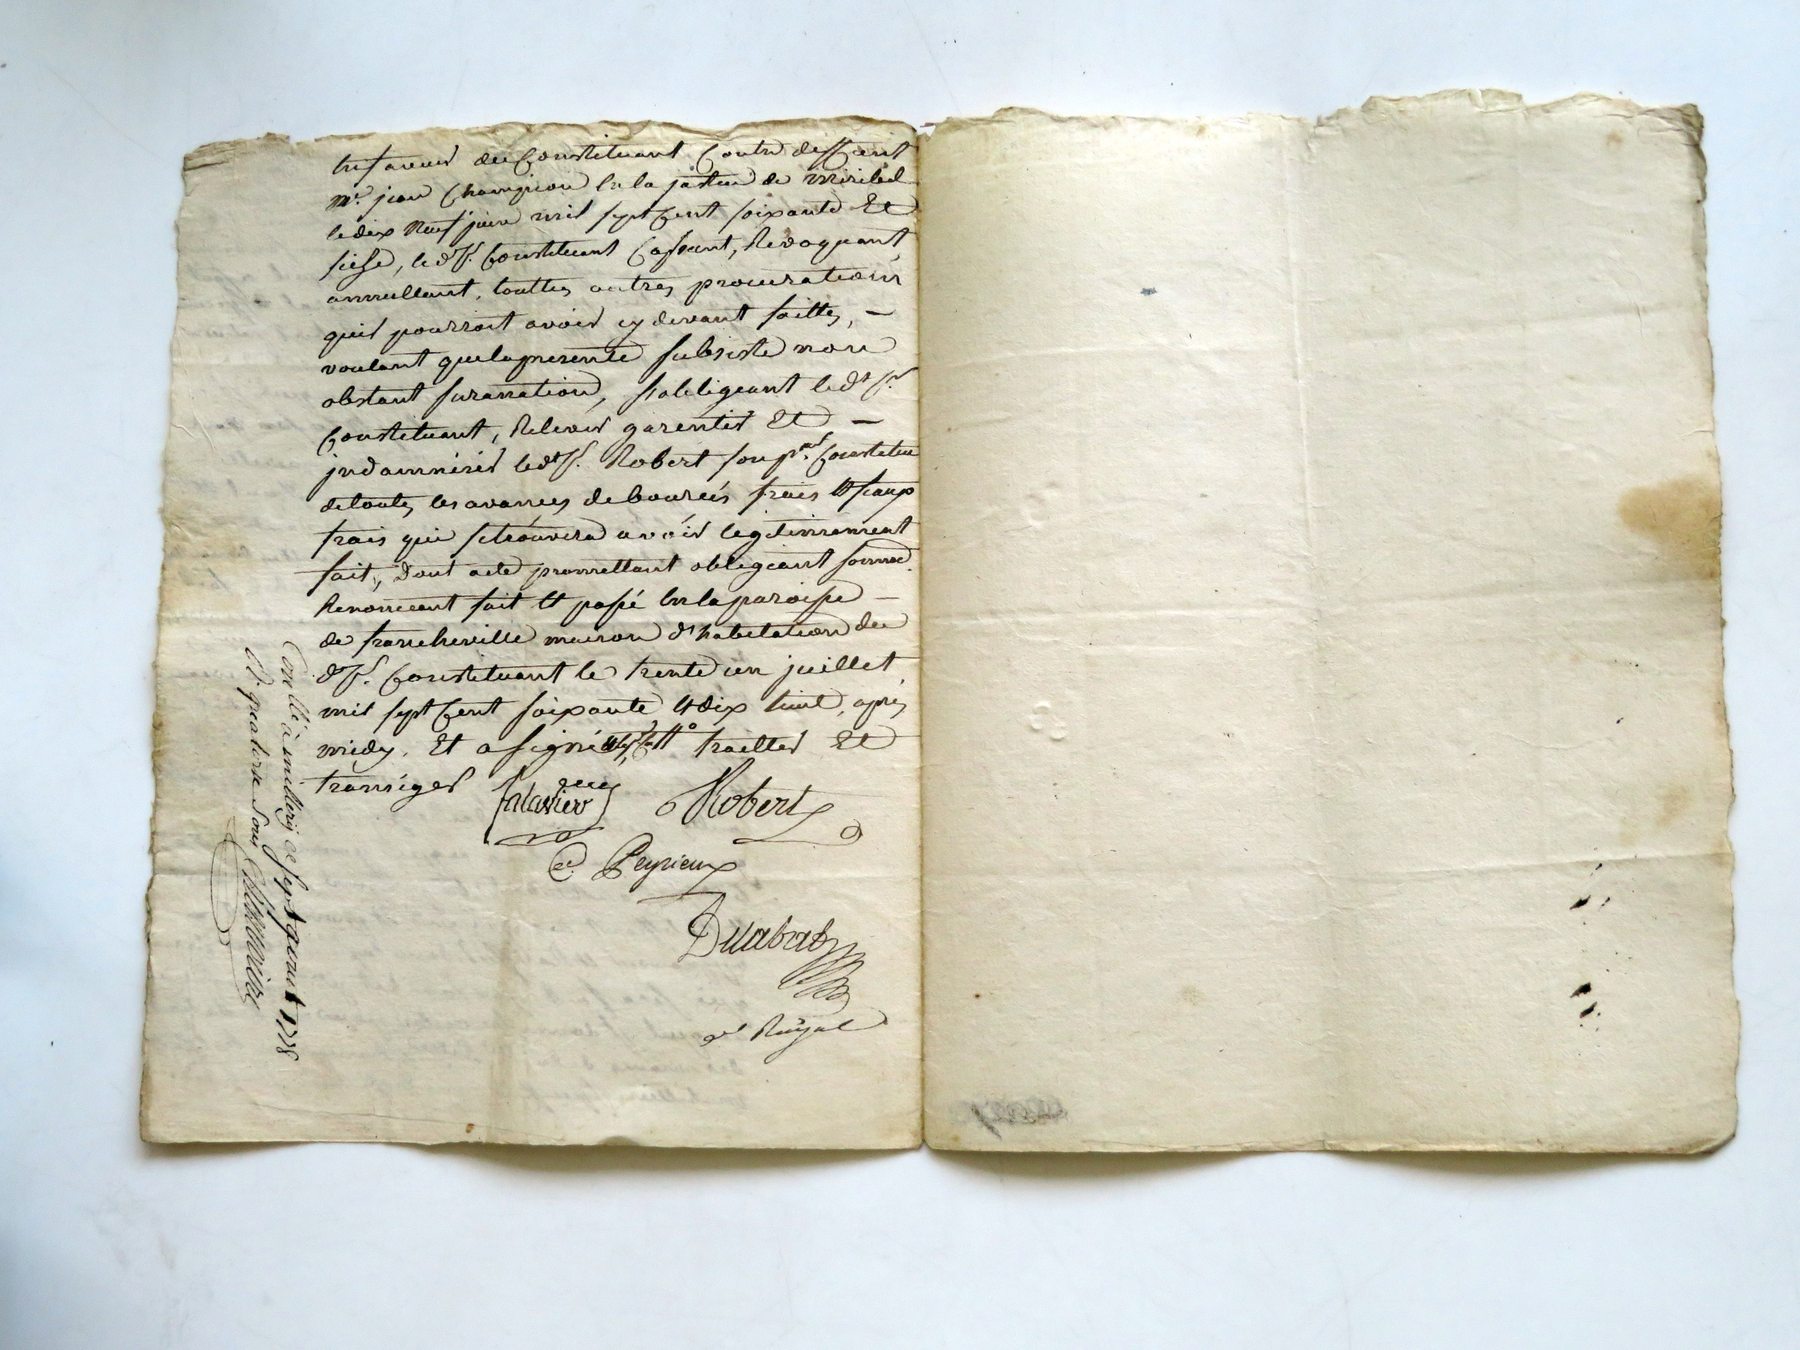 en faveur du Constituant Contre deffunt
Mr. jean Champion en la justice de miribel
le dix Neuf juin mil sept Cent soixante Et
seise, led. Sr. Constituant Cassant, Revoquant,
annullant, touttes autres procurations
quil pourroit avoir cy devant faittes, —
voulant que la presente subsiste non
obstant surannation, sobligeant led. Sr.
Constituant, Relever garentir Et —
indamniser led. Sr. Robert son pr. Constitué
de toutes les avances debourcés frais Et faux
frais qui se trouvera avoir legitimement
fait, Dont acte promettant obligeant soumet.
Renonceant fait Et passé en la paroisse —
de francheville maison d'habitation du
d. Sr. Constituant le trente un juillet
mil sept Cent soixante Et dix huit, apres
midy. Et a signé traitter Et
transiger
Robert
Peyrieux
Duabrab
Royal
Conllé à millery ce sept aoust 1778
R. quatorze sous